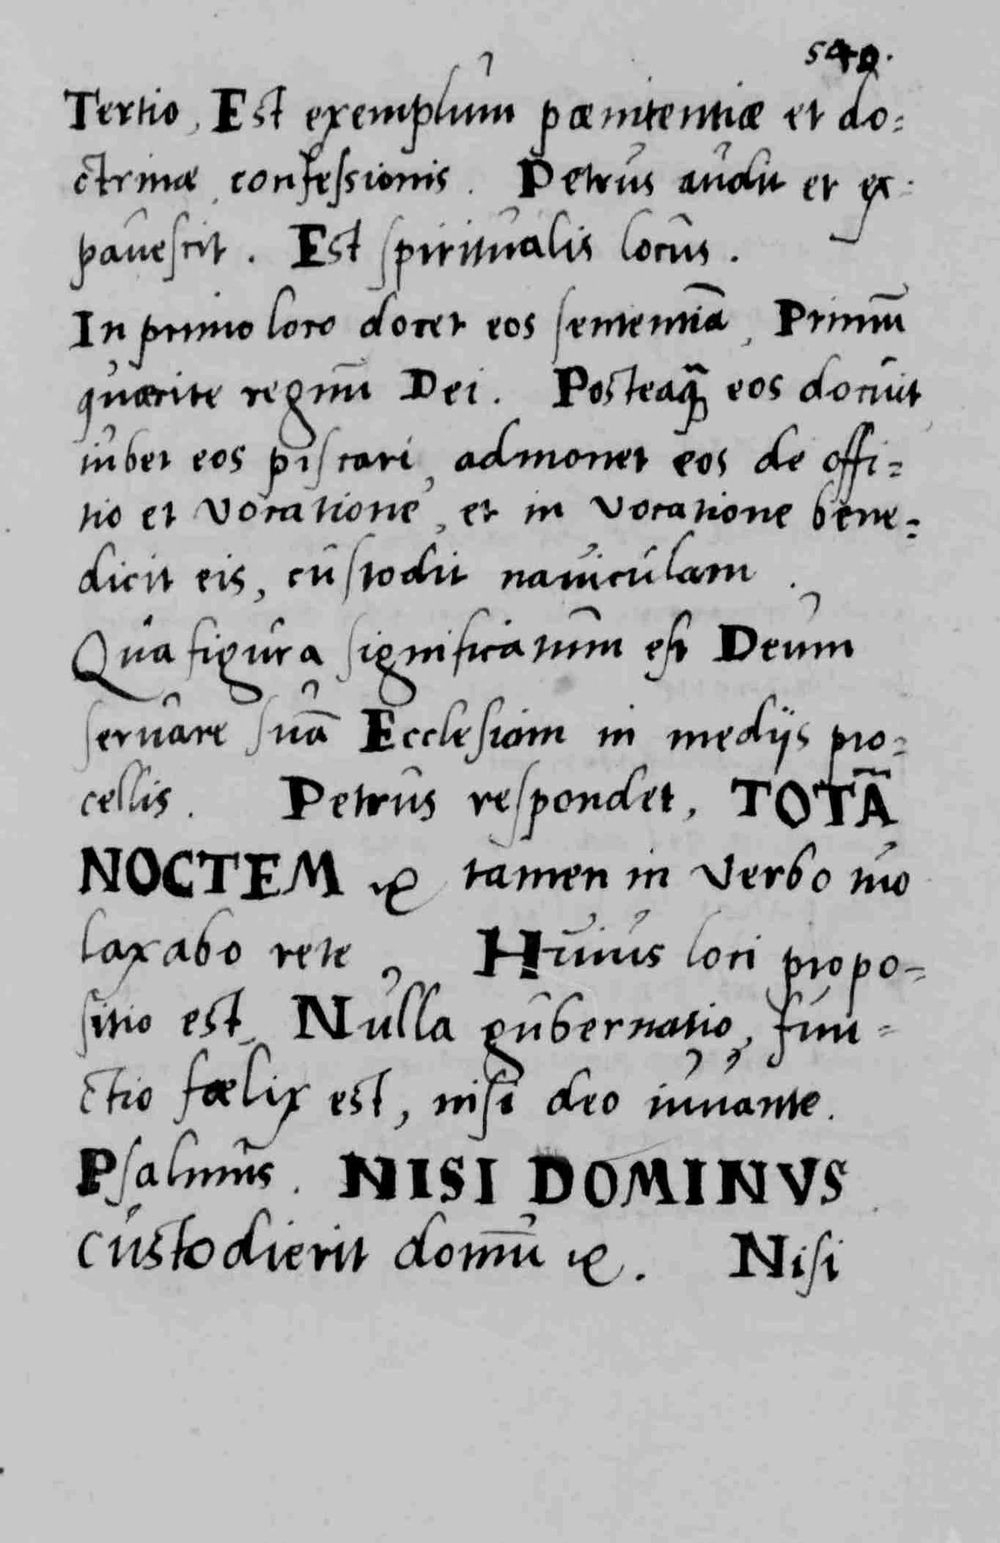 540.
Tertio, Est exemplum pœnitentiæ et do=
ctrinæ confessionis. Petrus audit et ex=
pauescit. Est spiritualis locus.
In primo loco docet eos sententiā, Primū
quærite regnū Dei. Posteaq̄ eos docuit
iubet eos piscari, admonet eos de offi=
tio et vocatione, et in vocatione bene=
dicit eis, custodit nauiculam.
Qua figura significatum est Deum
seruare suā Ecclesiam in medijs pro=
cellis. Petrus respondet, TOTĀ
NOCTEM &c tamen in verbo tuo
laxabo rete, Huius loci propo=
sitio est, Nulla gubernatio, fun=
ctio fœlix est, nisi deo iuuante.
Psalmus. NISI DOMINVS
custodierit domū &c. Nisi